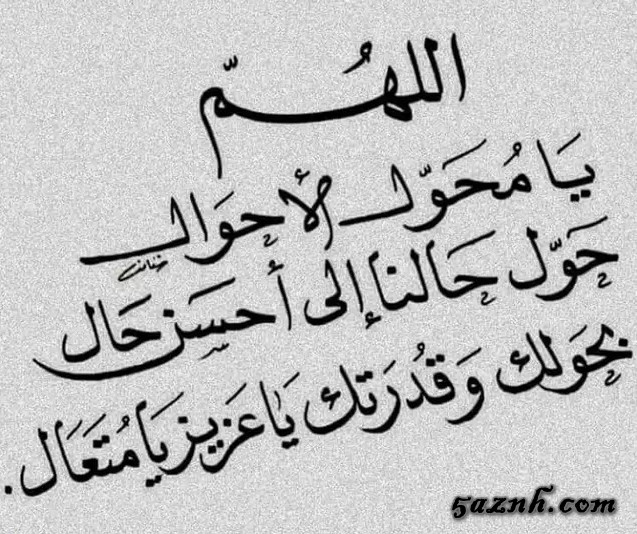 اللهُمّ
يَا مُحَوّل الأحوَال
حَوّل حَالنا إلى أحسَن حَال
بحَولك وَقُدرَتك يَا عَزيز يَا مُتعَال.
5aznh.com